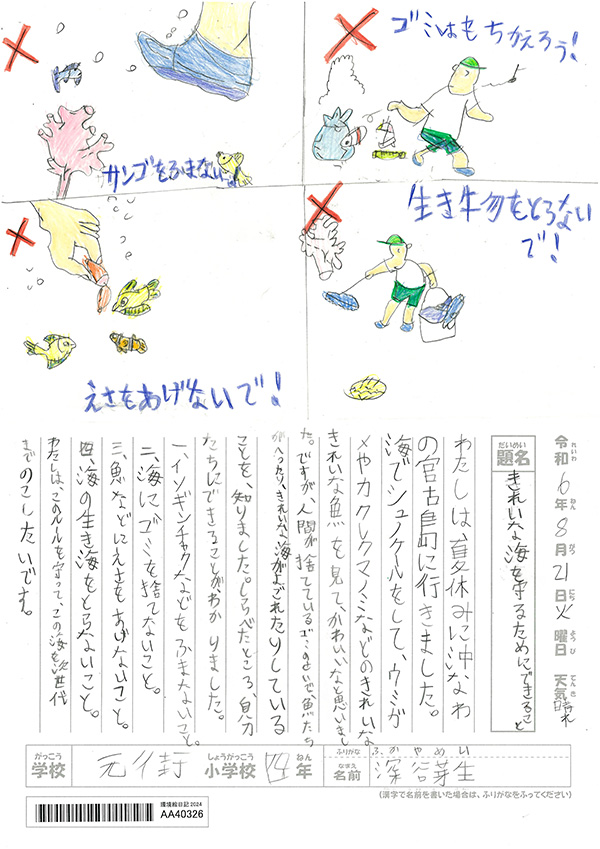 サンゴをふまない!
ゴミはもちかえろう!
えさをあげないで!
生き物をとらない
で!
令和6年8月21日火曜日 天気 晴れ
れいわ ねん がつ にち ようび てんき
だいめい
題名 きれいな海を守るためにできること
わたしは夏休みに沖なわ
の宮古島に行きました。
海でシュノケールをして、ウミガ
メやカクレクマノミなどのきれいな
きれいな魚を見て、かわいいなと思いまし
た。ですが、人間が捨てているゴミのせいで、魚たち
がへったり、きれいな海がよごれたりしている
ことを、知りました。しらべたところ、自分
たちにできることが、わかりました。
一、イソギンチャクなどをふまないこと。
二、海にゴミを捨てないこと。
三、魚などにえさをあげないこと。
四、海の生き海をとらないこと。
わたしは、このルールを守って、この海を次世代
までのこしたいです。
がっこう
学校
しょうがっこう
小学校 4 ねん
年
ふりがな ふかやめい
なまえ
名前 深谷芽生
(漢字で名前を書いた場合は、ふりがなをふってください)
環境絵日記2024
AA40326